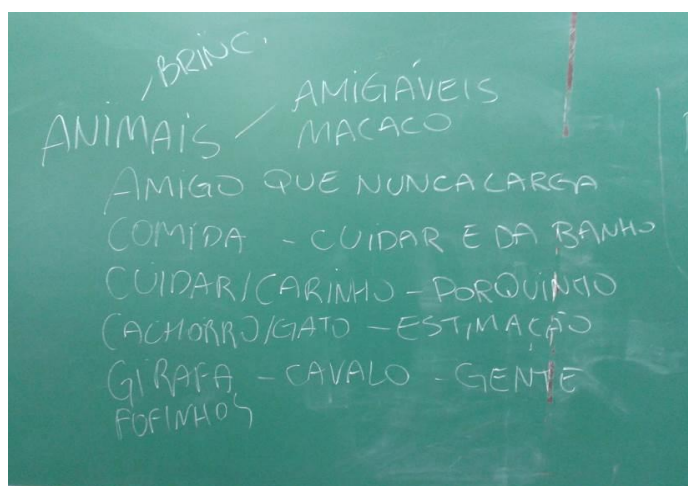 BRINC.
AMIGÁVEIS
ANIMAIS
MACACO
AMIGO QUE NUNCA LARGA
COMIDA - CUIDAR E DA BANHO
CUIDAR/CARINHO - PORQUINHO
CACHORRO/GATO - ESTIMAÇÃO
GIRAFA - CAVALO - GENTE
FOFINHOS